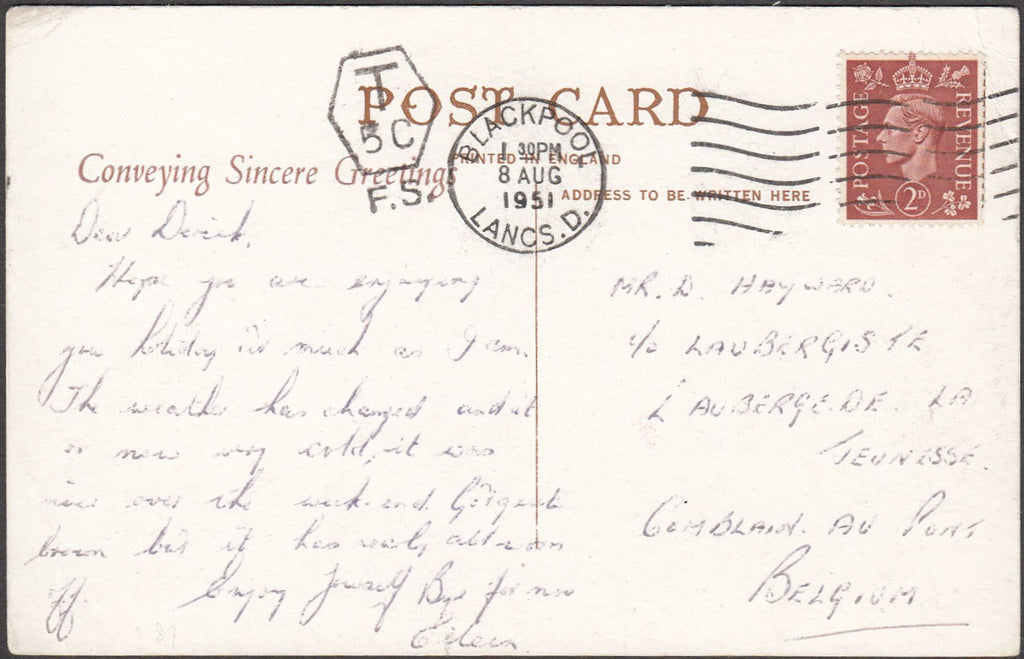 T
5C
F.S.
POST CARD
Conveying Sincere Greetings
PRINTED IN ENGLAND
ADDRESS TO BE WRITTEN HERE
BLACKPOOL
1 30PM
8 AUG
1951
LANCS.D.
POSTAGE REVENUE
2D
Dear Derick,
Hope you are enjoying
your holiday as much as I am.
The weather has changed and it
is now very cold, it was
nice over the week-end. Got quite
brown but it has nearly all worn
off. Enjoy yourself Bye for now
Eileen
MR. D. HAYWARD.
c/o LAUBERGISTE
L'AUBERGE.DE. LA
JEUNESSE.
COMBLAIN. AU PONT
BELGIUM